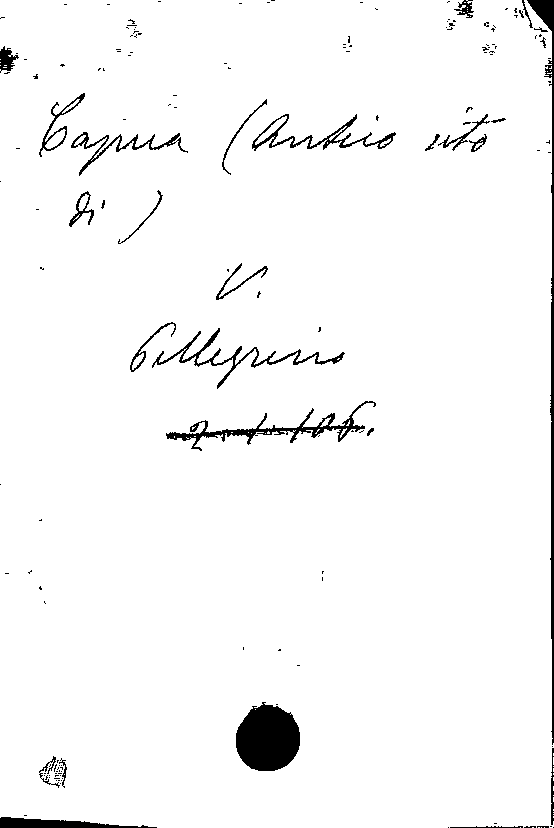 Capua (Antico sito
di)
V.
Pellegrino